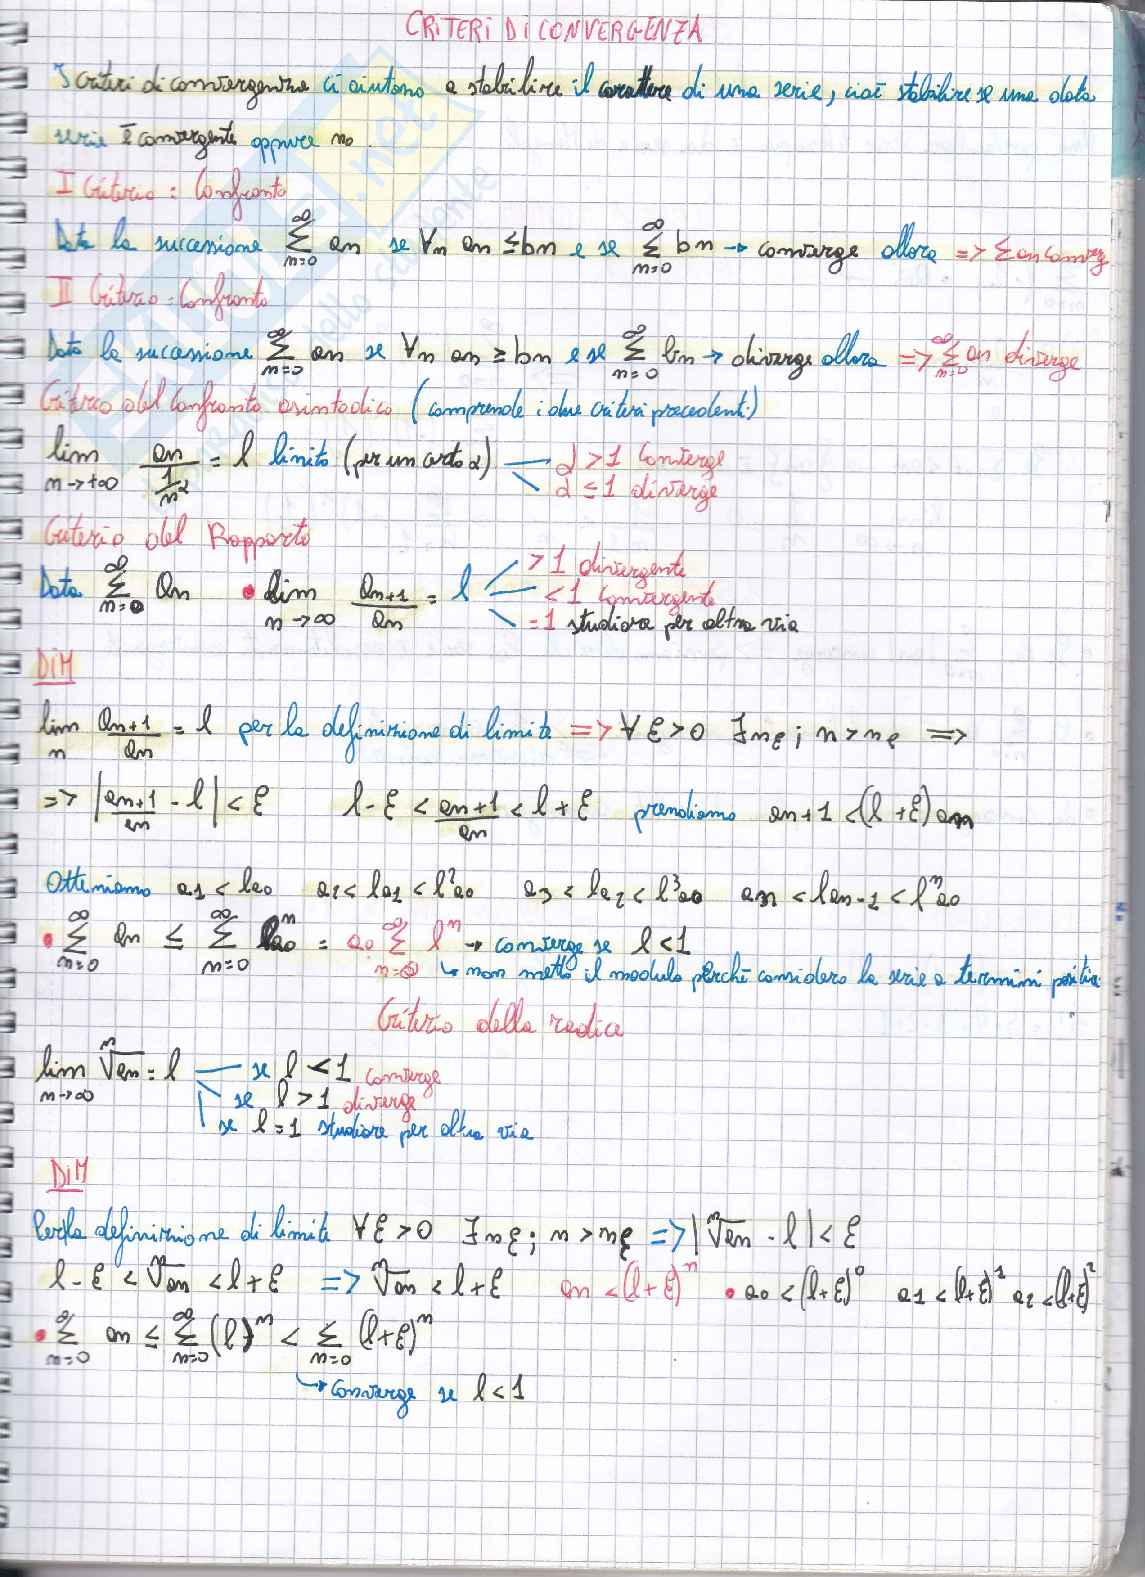 CRITERI DI CONVERGENZA
I criteri di convergenza ci aiutano a stabilire il carattere di una serie, cioè stabilire se una data
serie è convergente oppure no.
I Criterio: Confronto
Data la successione ∑_{n=0}^{∞} an se ∀n an ≤ bn e se ∑_{n=0}^{∞} bn → converge allora => ∑an converg
II Criterio: Confronto
Data la successione ∑_{n=0}^{∞} an se ∀n an ≥ bn e se ∑_{n=0}^{∞} bn → diverge allora => ∑_{n=0}^{∞} an diverge
Criterio del Confronto asintodico (comprende i due criteri precedenti)
lim_{n→+∞} an/(1/n^α) = l finito (per un certo α) α > 1 converge
α ≤ 1 diverge
Criterio del Rapporto
Data ∑_{n=0}^{∞} an • lim_{n→∞} an+1/an = l > 1 divergente
< 1 convergente
= 1 studiare per altra via
DIM
lim_n an+1/an = l per la definizione di limite => ∀ε>0 ∃nε; n>nε =>
=> |an+1/an - l| < ε l-ε < an+1/an < l+ε prendiamo an+1 < (l+ε)an
Otteniamo a1 < la0 a2 < la1 < l²a0 a3 < la2 < l³a0 an < lan-1 < lⁿa0
• ∑_{n=0}^{∞} an ≤ ∑_{n=0}^{∞} lⁿa0 = a0 ∑_{n=0}^{∞} lⁿ → converge se l<1
↳ non metto il modulo perché considero la serie a termini positivi
Criterio della radice
lim_{n→∞} ⁿ√an = l se l < 1 converge
se l > 1 diverge
se l = 1 studiare per altra via
DIM
Per la definizione di limite ∀ε>0 ∃nε; n>nε => |ⁿ√an - l| < ε
l-ε < ⁿ√an < l+ε => ⁿ√an < l+ε an < (l+ε)ⁿ • a0 < (l+ε)⁰ a1 < (l+ε)¹ a2 < (l+ε)²
• ∑_{n=0}^{∞} an ≤ ∑_{n=0}^{∞} (l)ⁿ < ∑_{n=0} (l+ε)ⁿ
↳ converge se l<1